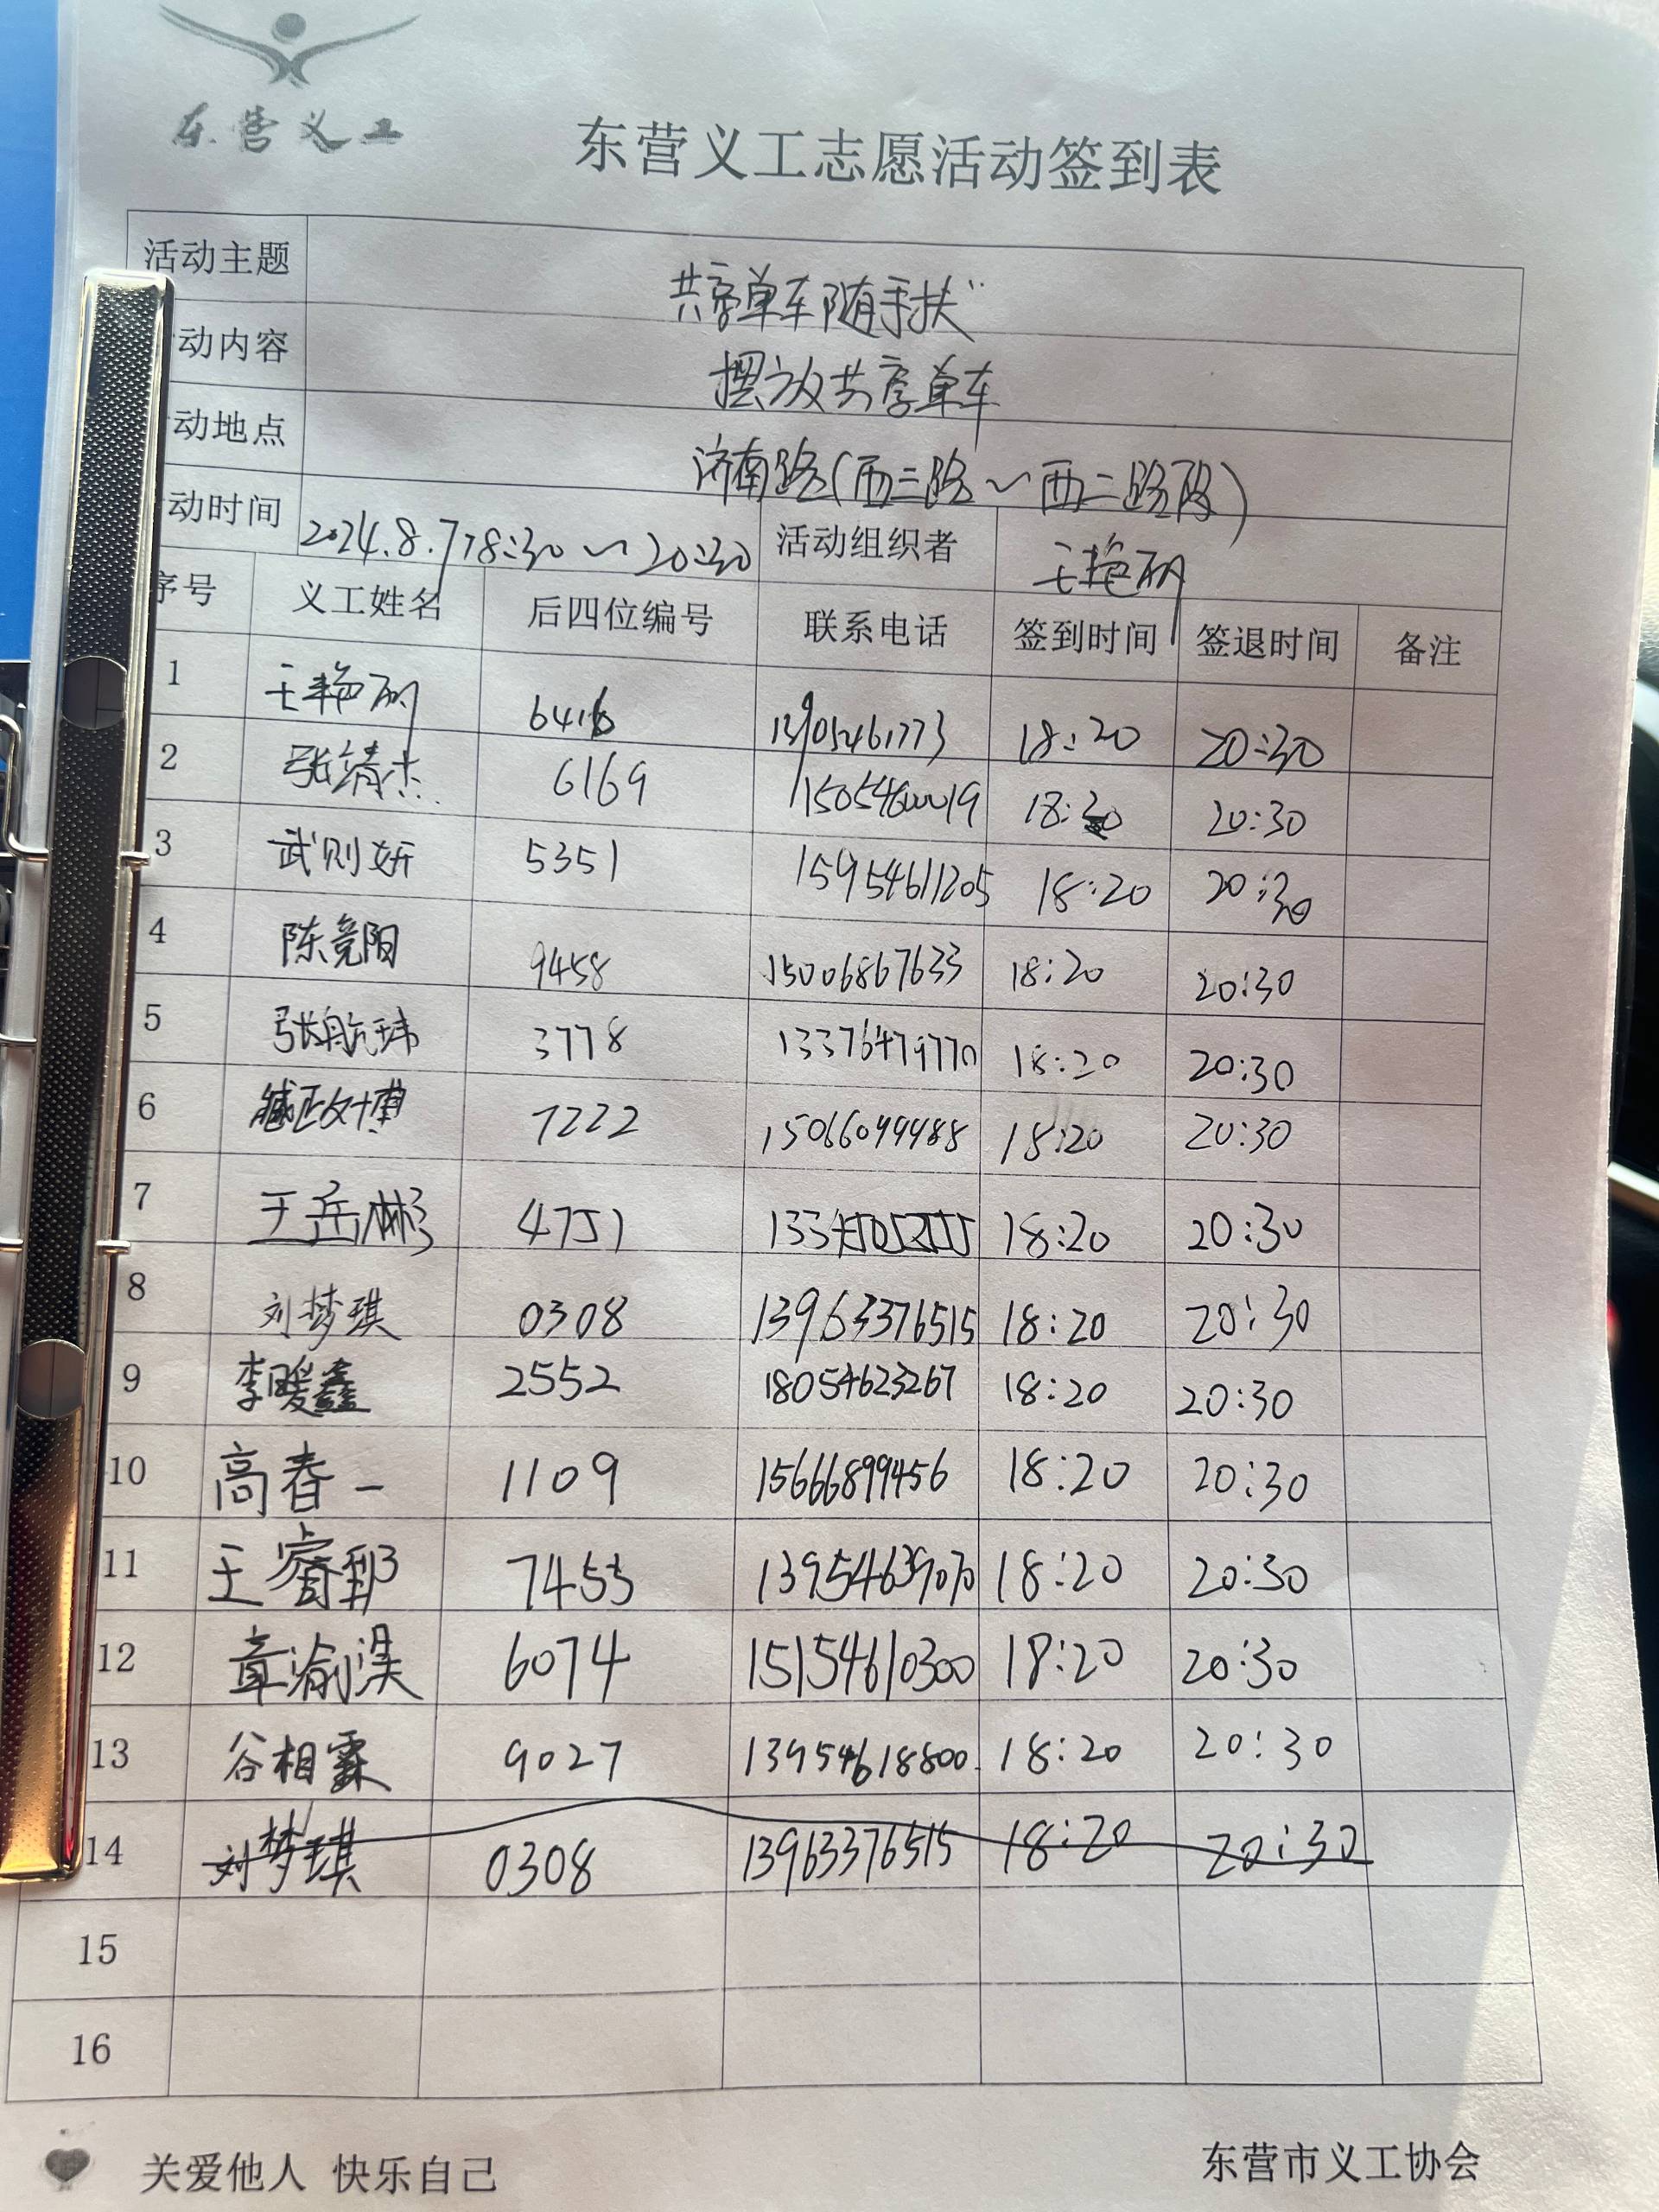 东营义工
东营义工志愿活动签到表
活动主题 共享单车随手扶"
动内容 摆放共享单车
动地点 济南路(西三路～西二路段)
动时间 2024.8.7 18:30～20:30 活动组织者 王艳丽
序号 义工姓名 后四位编号 联系电话 签到时间 签退时间 备注
1 王艳丽 6416 13905461773 18:20 20:30
2 张靖杰 6169 15054600019 18:20 20:30
3 武则妍 5351 15954611205 18:20 20:30
4 陈竞阳 9458 15006867633 18:20 20:30
5 张航玮 3778 13376479770 18:20 20:30
6 臧政博 7222 15066099488 18:20 20:30
7 王岳彬 4751 18:20 20:30
8 刘梦琪 0308 13963376515 18:20 20:30
9 李暖鑫 2552 18054623267 18:20 20:30
10 高春一 1109 15666899456 18:20 20:30
11 王睿郅 7453 13954639070 18:20 20:30
12 章渝淏 6074 15154610300 18:20 20:30
13 谷相霖 9027 13954618800 18:20 20:30
14 刘梦琪 0308 13963376515 18:20 20:30
15
16
关爱他人 快乐自己 东营市义工协会